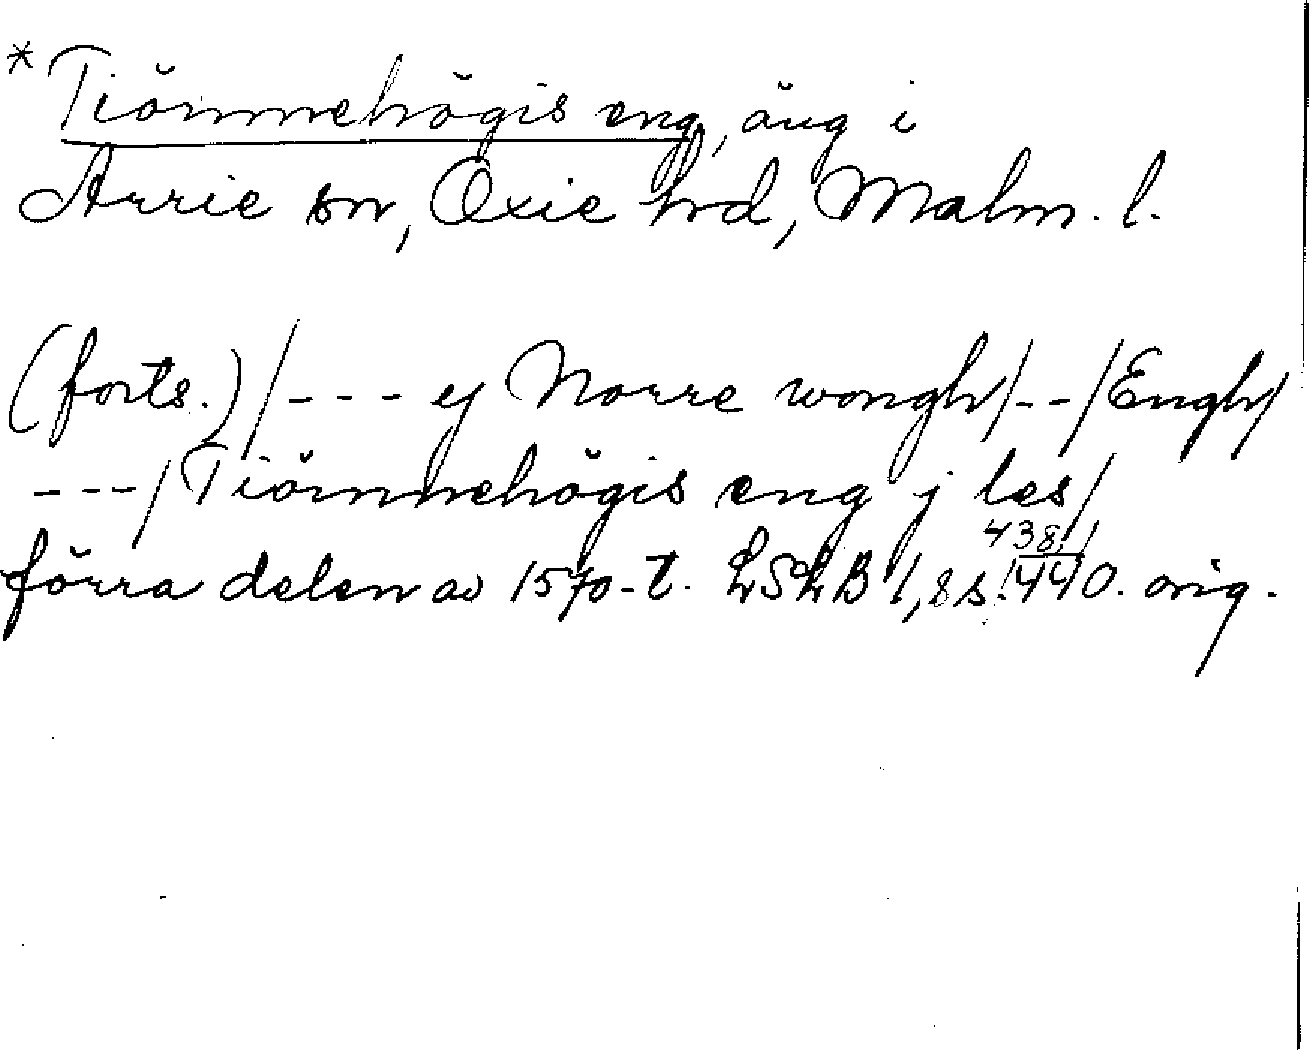 * Tiörnnehögis eng, äng i
Arrie sn, Oxie hd, Malm. l.
(forts.) /--- ej Norre wongh/--/Engh/
---/Tiörnnehögis eng j les/
förra delen av 1570-t. LSLB 1,8 s. 438, 440. orig.